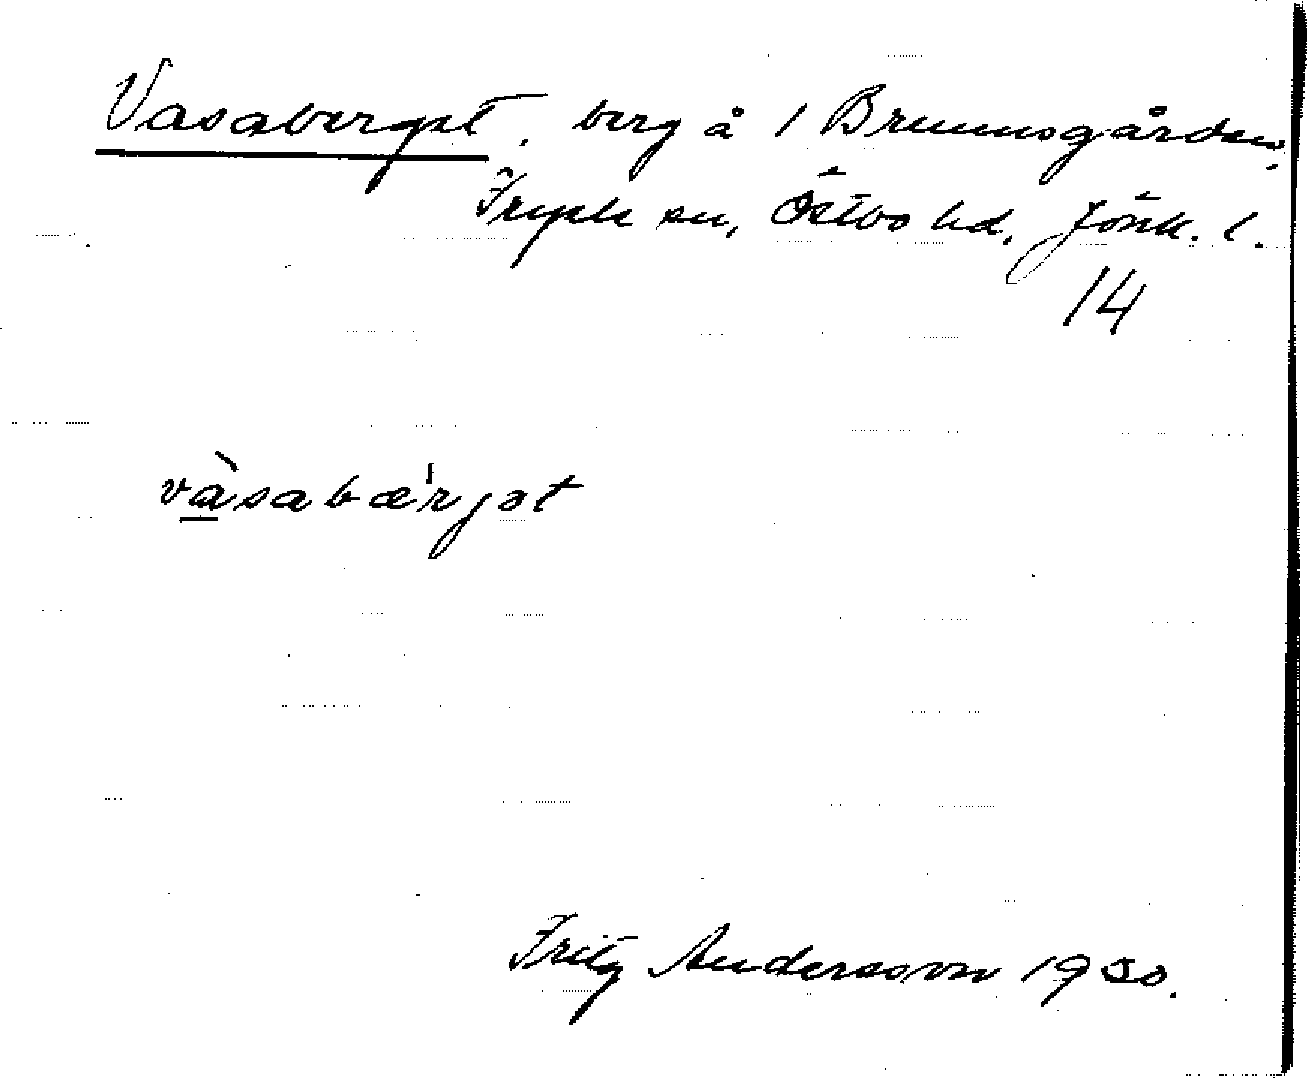 Vasaberget, berg å 1 Brunnsgården,
Fryele sn, Östbo hd, Jönk. l.
14
vàsabær'jət
Fritz Andersson 1930.